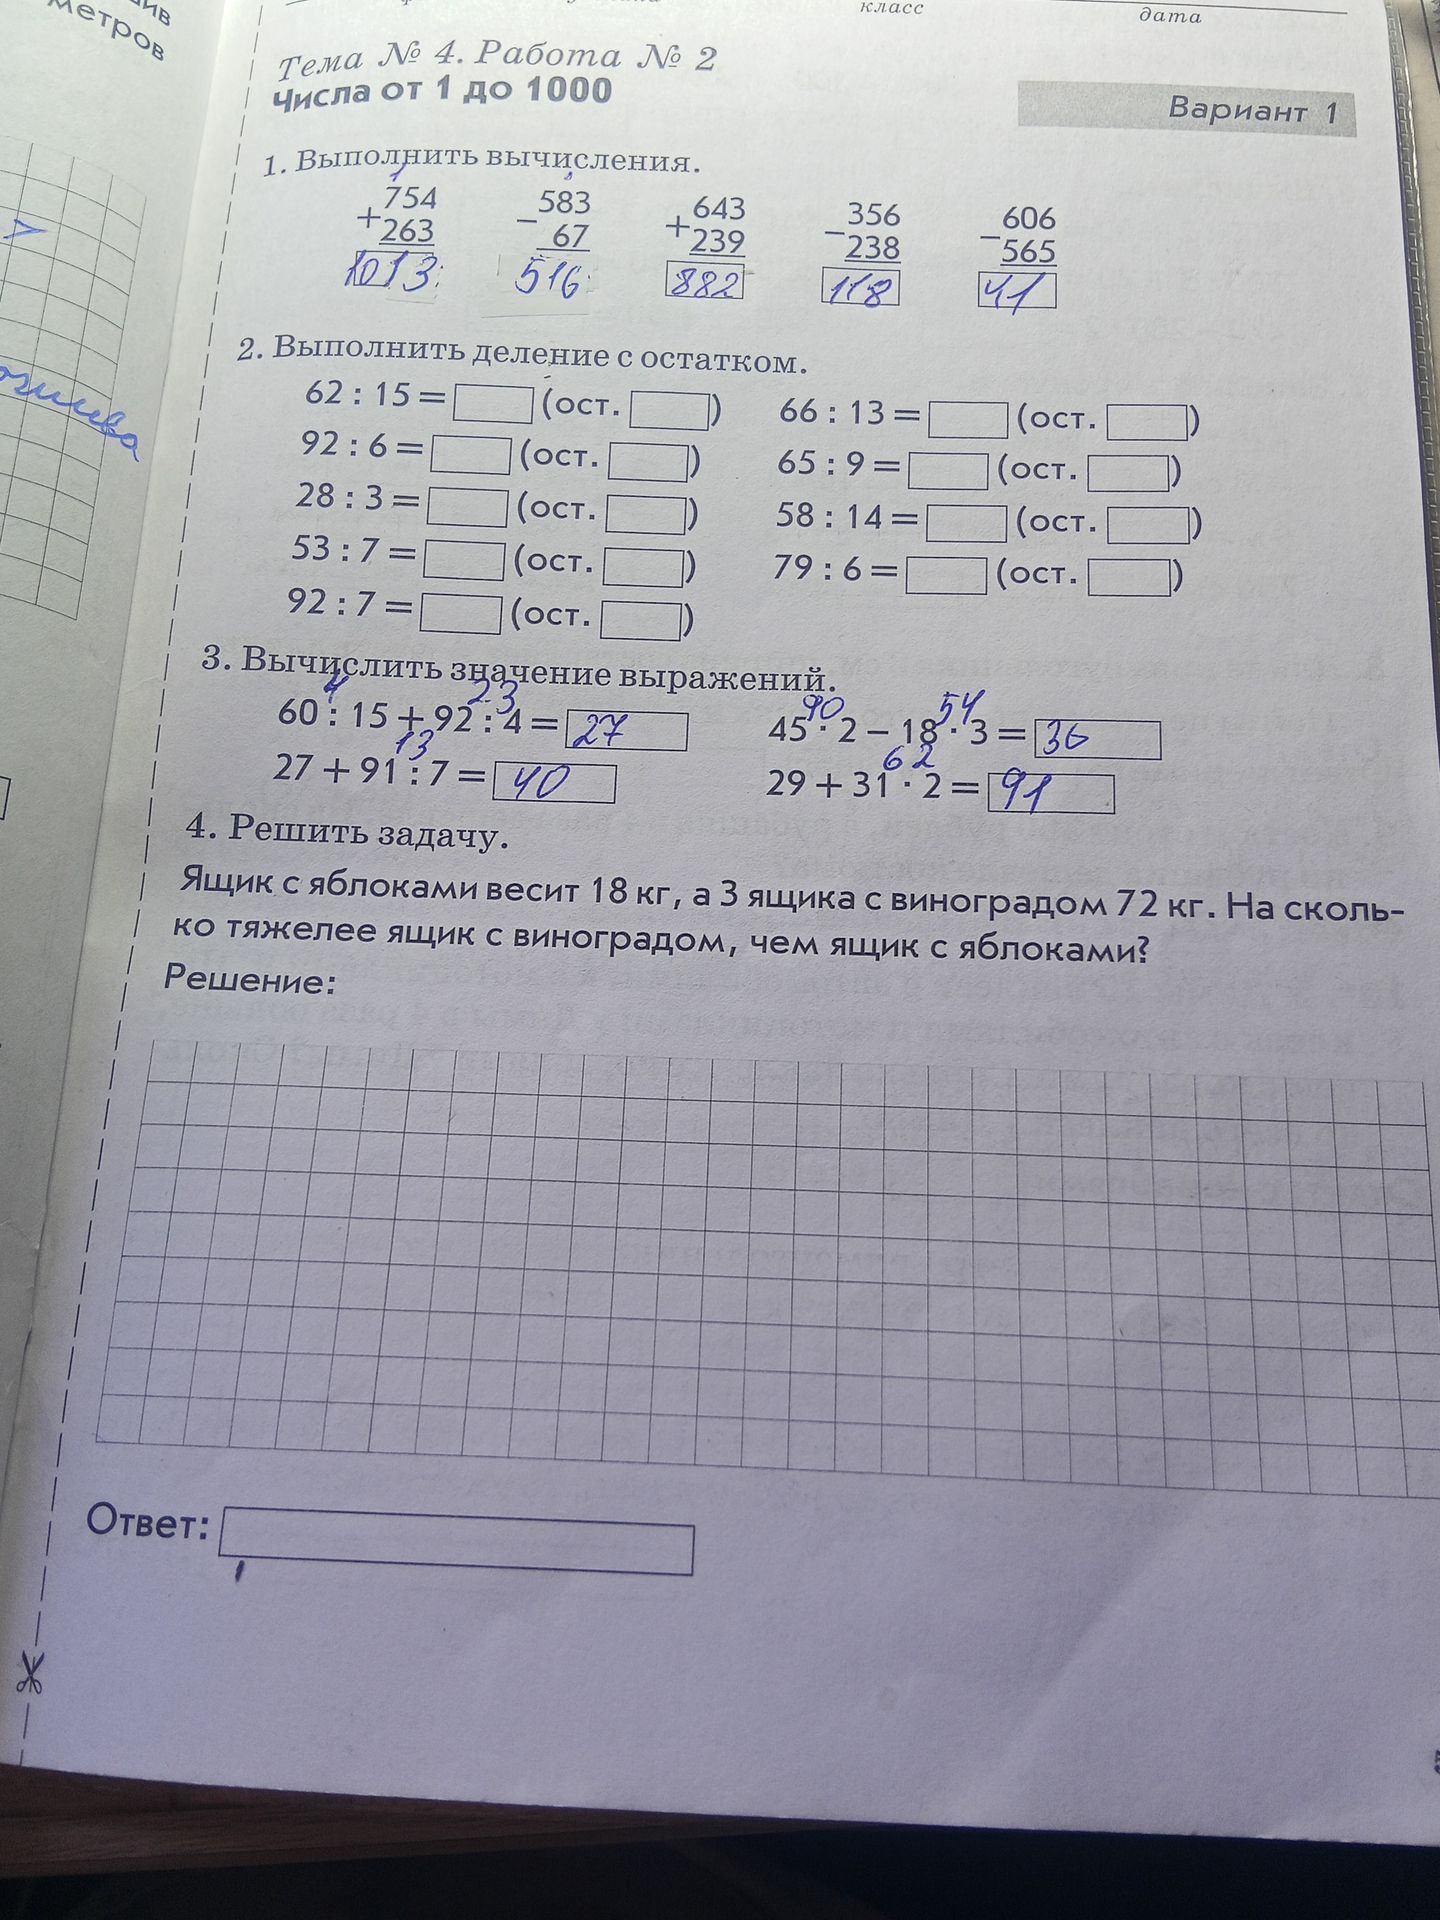 метров
класс
дата
Тема № 4. Работа № 2
Числа от 1 до 1000
Вариант 1
1. Выполнить вычисления.
1
754 583 643 356 606
+ − + − −
263 67 239 238 565
1013 516 882 118 41
2. Выполнить деление с остатком.
62 : 15 = (ост. ) 66 : 13 = (ост. )
92 : 6 = (ост. ) 65 : 9 = (ост. )
28 : 3 = (ост. ) 58 : 14 = (ост. )
53 : 7 = (ост. ) 79 : 6 = (ост. )
92 : 7 = (ост. )
3. Вычислить значение выражений.
4 23 90 54
60 : 15 + 92 : 4 = 27 45 · 2 − 18 · 3 = 36
13 62
27 + 91 : 7 = 40 29 + 31 · 2 = 91
4. Решить задачу.
Ящик с яблоками весит 18 кг, а 3 ящика с виноградом 72 кг. На сколь-
ко тяжелее ящик с виноградом, чем ящик с яблоками?
Решение:
Ответ: